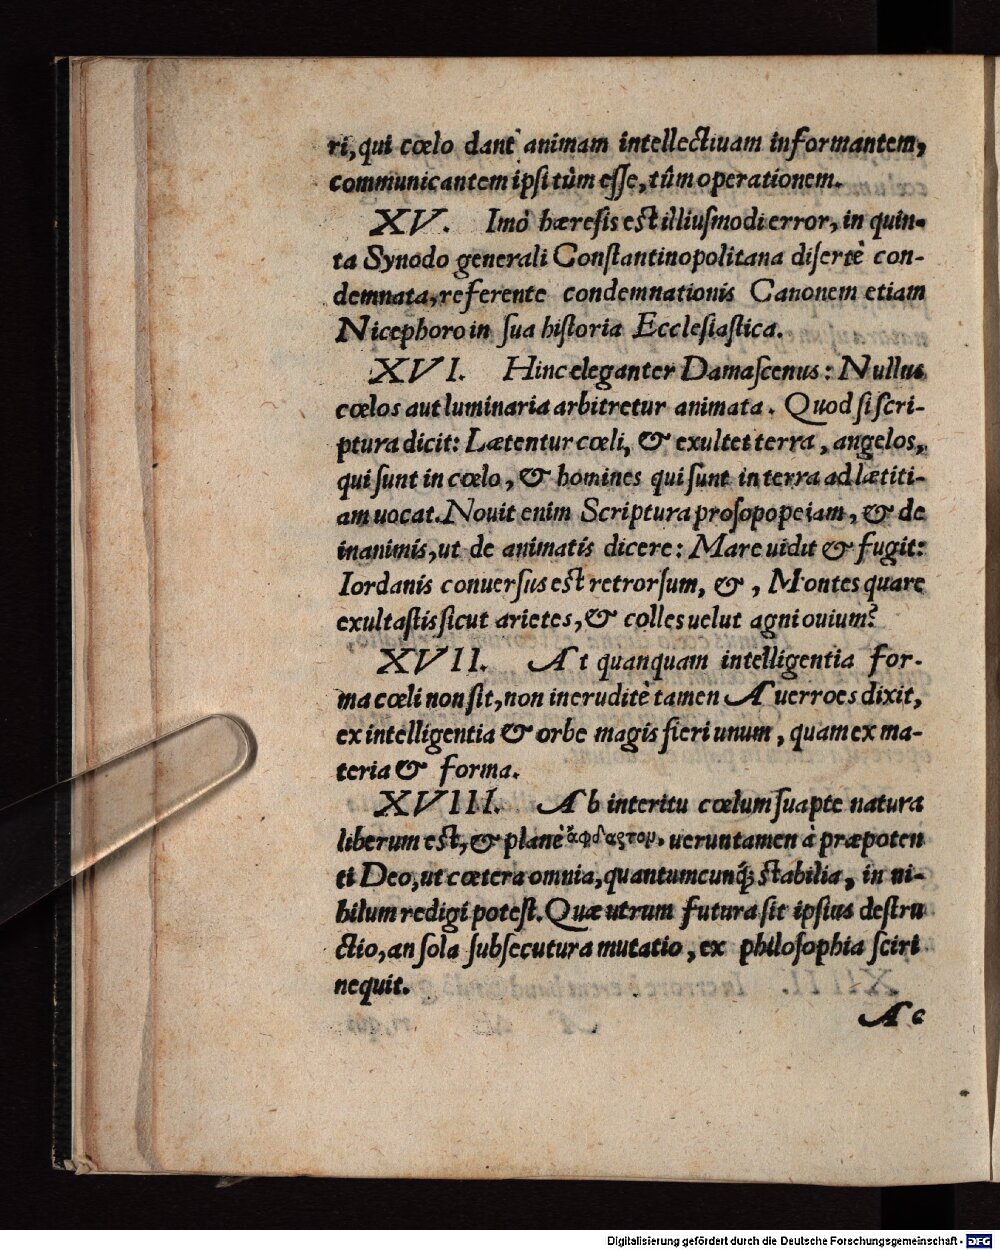 ri, qui cœlo dant animam intellectiuam informantem,
communicantem ipsi tùm esse, tûm operationem.
XV. Imò hæresis est illiusmodi error, in quin-
ta Synodo generali Constantinopolitana disertè con-
demnata, referente condemnationis Canonem etiam
Nicephoro in sua historia Ecclesiastica.
XVI. Hinc eleganter Damascenus: Nullus
cœlos aut luminaria arbitretur animata. Quod si scri-
ptura dicit: Lætentur cœli, & exultet terra, angelos,
qui sunt in cœlo, & homines qui sunt in terra ad lætiti-
am uocat. Nouit enim Scriptura prosopopeiam, & de
inanimis, ut de animatis dicere: Mare uidit & fugit:
Iordanis conuersus est retrorsum, &, Montes quare
exultastis sicut arietes, & colles uelut agni ouium?
XVII. At quanquam intelligentia for-
ma cœli non sit, non ineruditè tamen Auerroes dixit,
ex intelligentia & orbe magis fieri unum, quam ex ma-
teria & forma.
XVIII. Ab interitu cœlum suapte natura
liberum est, & planè ἄφθαρτον. ueruntamen à præpoten
ti Deo, ut cœtera omnia, quantumcunq; stabilia, in ni-
hilum redigi potest. Quæ utrum futura sit ipsius destru
ctio, an sola subsecutura mutatio, ex philosophia sciri
nequit.
Ac
Digitalisierung gefördert durch die Deutsche Forschungsgemeinschaft - DFG